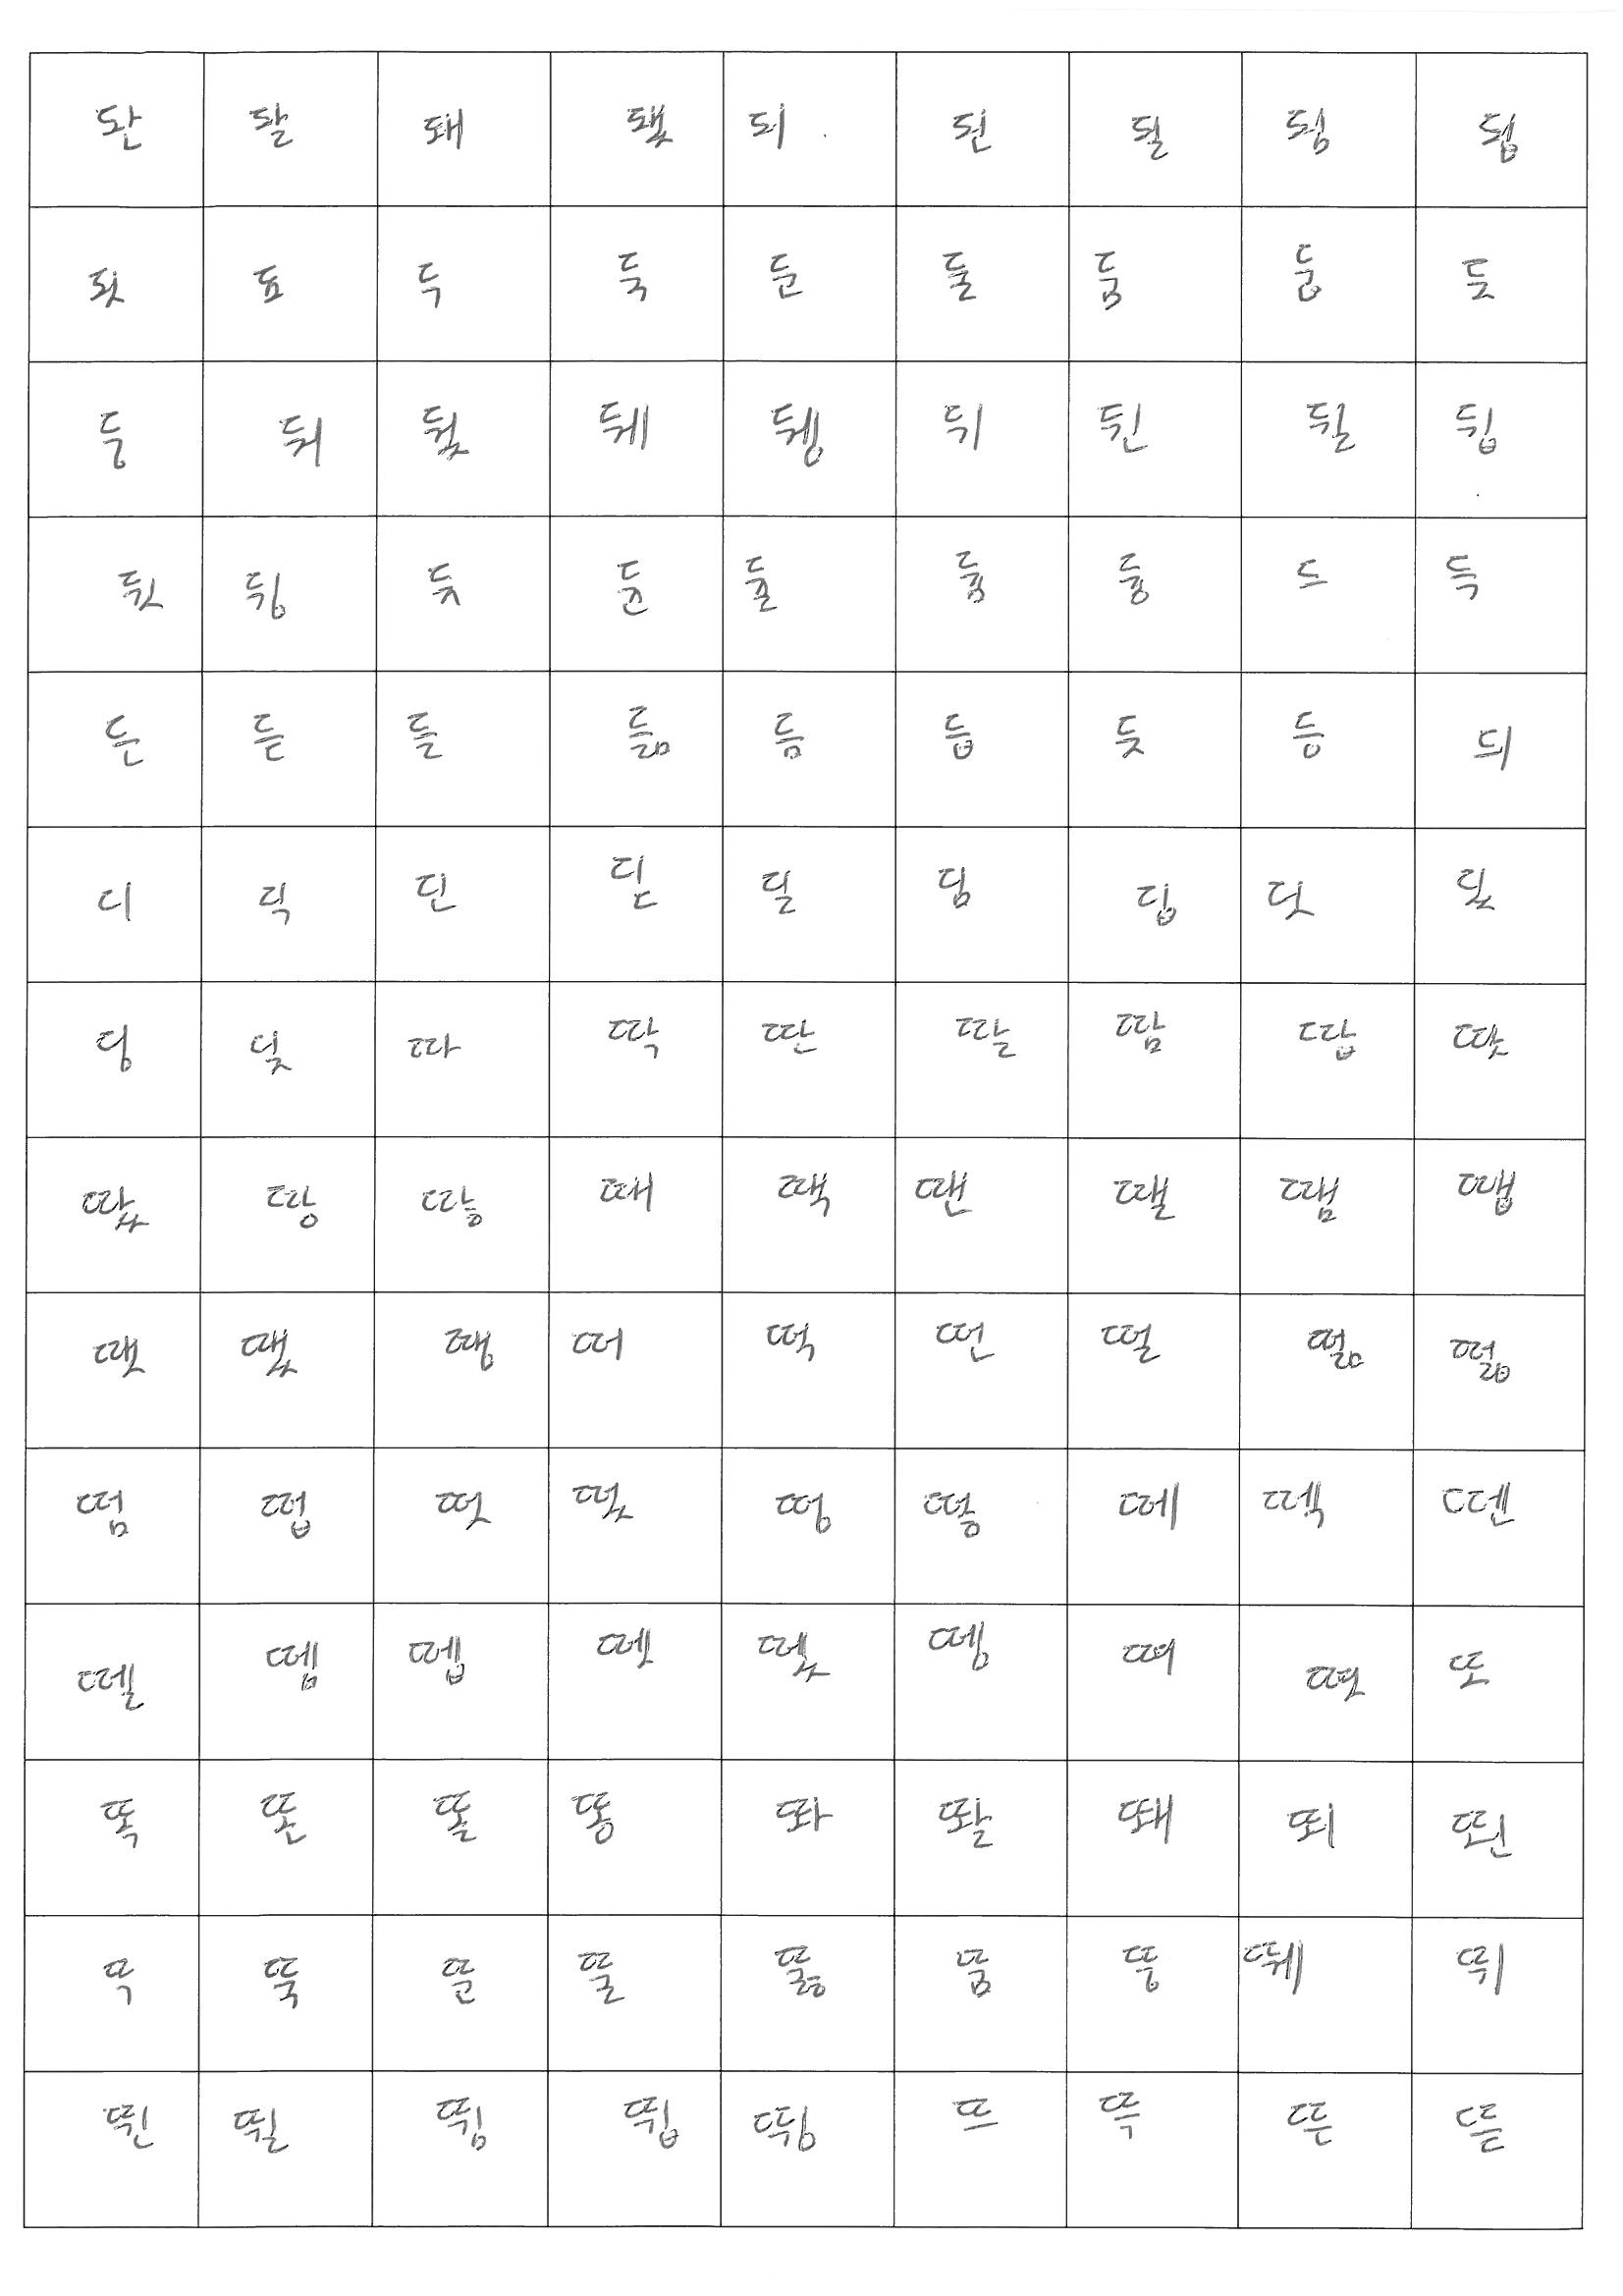 돤 돨 돼 됐 되 된 될 됨 됩
됫 됴 두 둑 둔 둘 둠 둡 둣
둥 둬 뒀 뒈 뒝 뒤 뒨 뒬 뒵
뒷 뒹 듀 듄 듈 듐 듕 드 득
든 듣 들 듦 듬 듭 듯 등 듸
디 딕 딘 딛 딜 딤 딥 딧 딨
딩 딪 따 딱 딴 딸 땀 땁 땃
땄 땅 땋 때 땍 땐 땔 땜 땝
땟 땠 땡 떠 떡 떤 떨 떪 떫
떰 떱 떳 떴 떵 떻 떼 떽 뗀
뗄 뗌 뗍 뗏 뗐 뗑 뗘 뗬 또
똑 똔 똘 똥 똬 똴 뙈 뙤 뙨
뚜 뚝 뚠 뚤 뚫 뚬 뚱 뛔 뛰
뛴 뛸 뜀 뜁 뛩 뜨 뜩 뜬 뜯